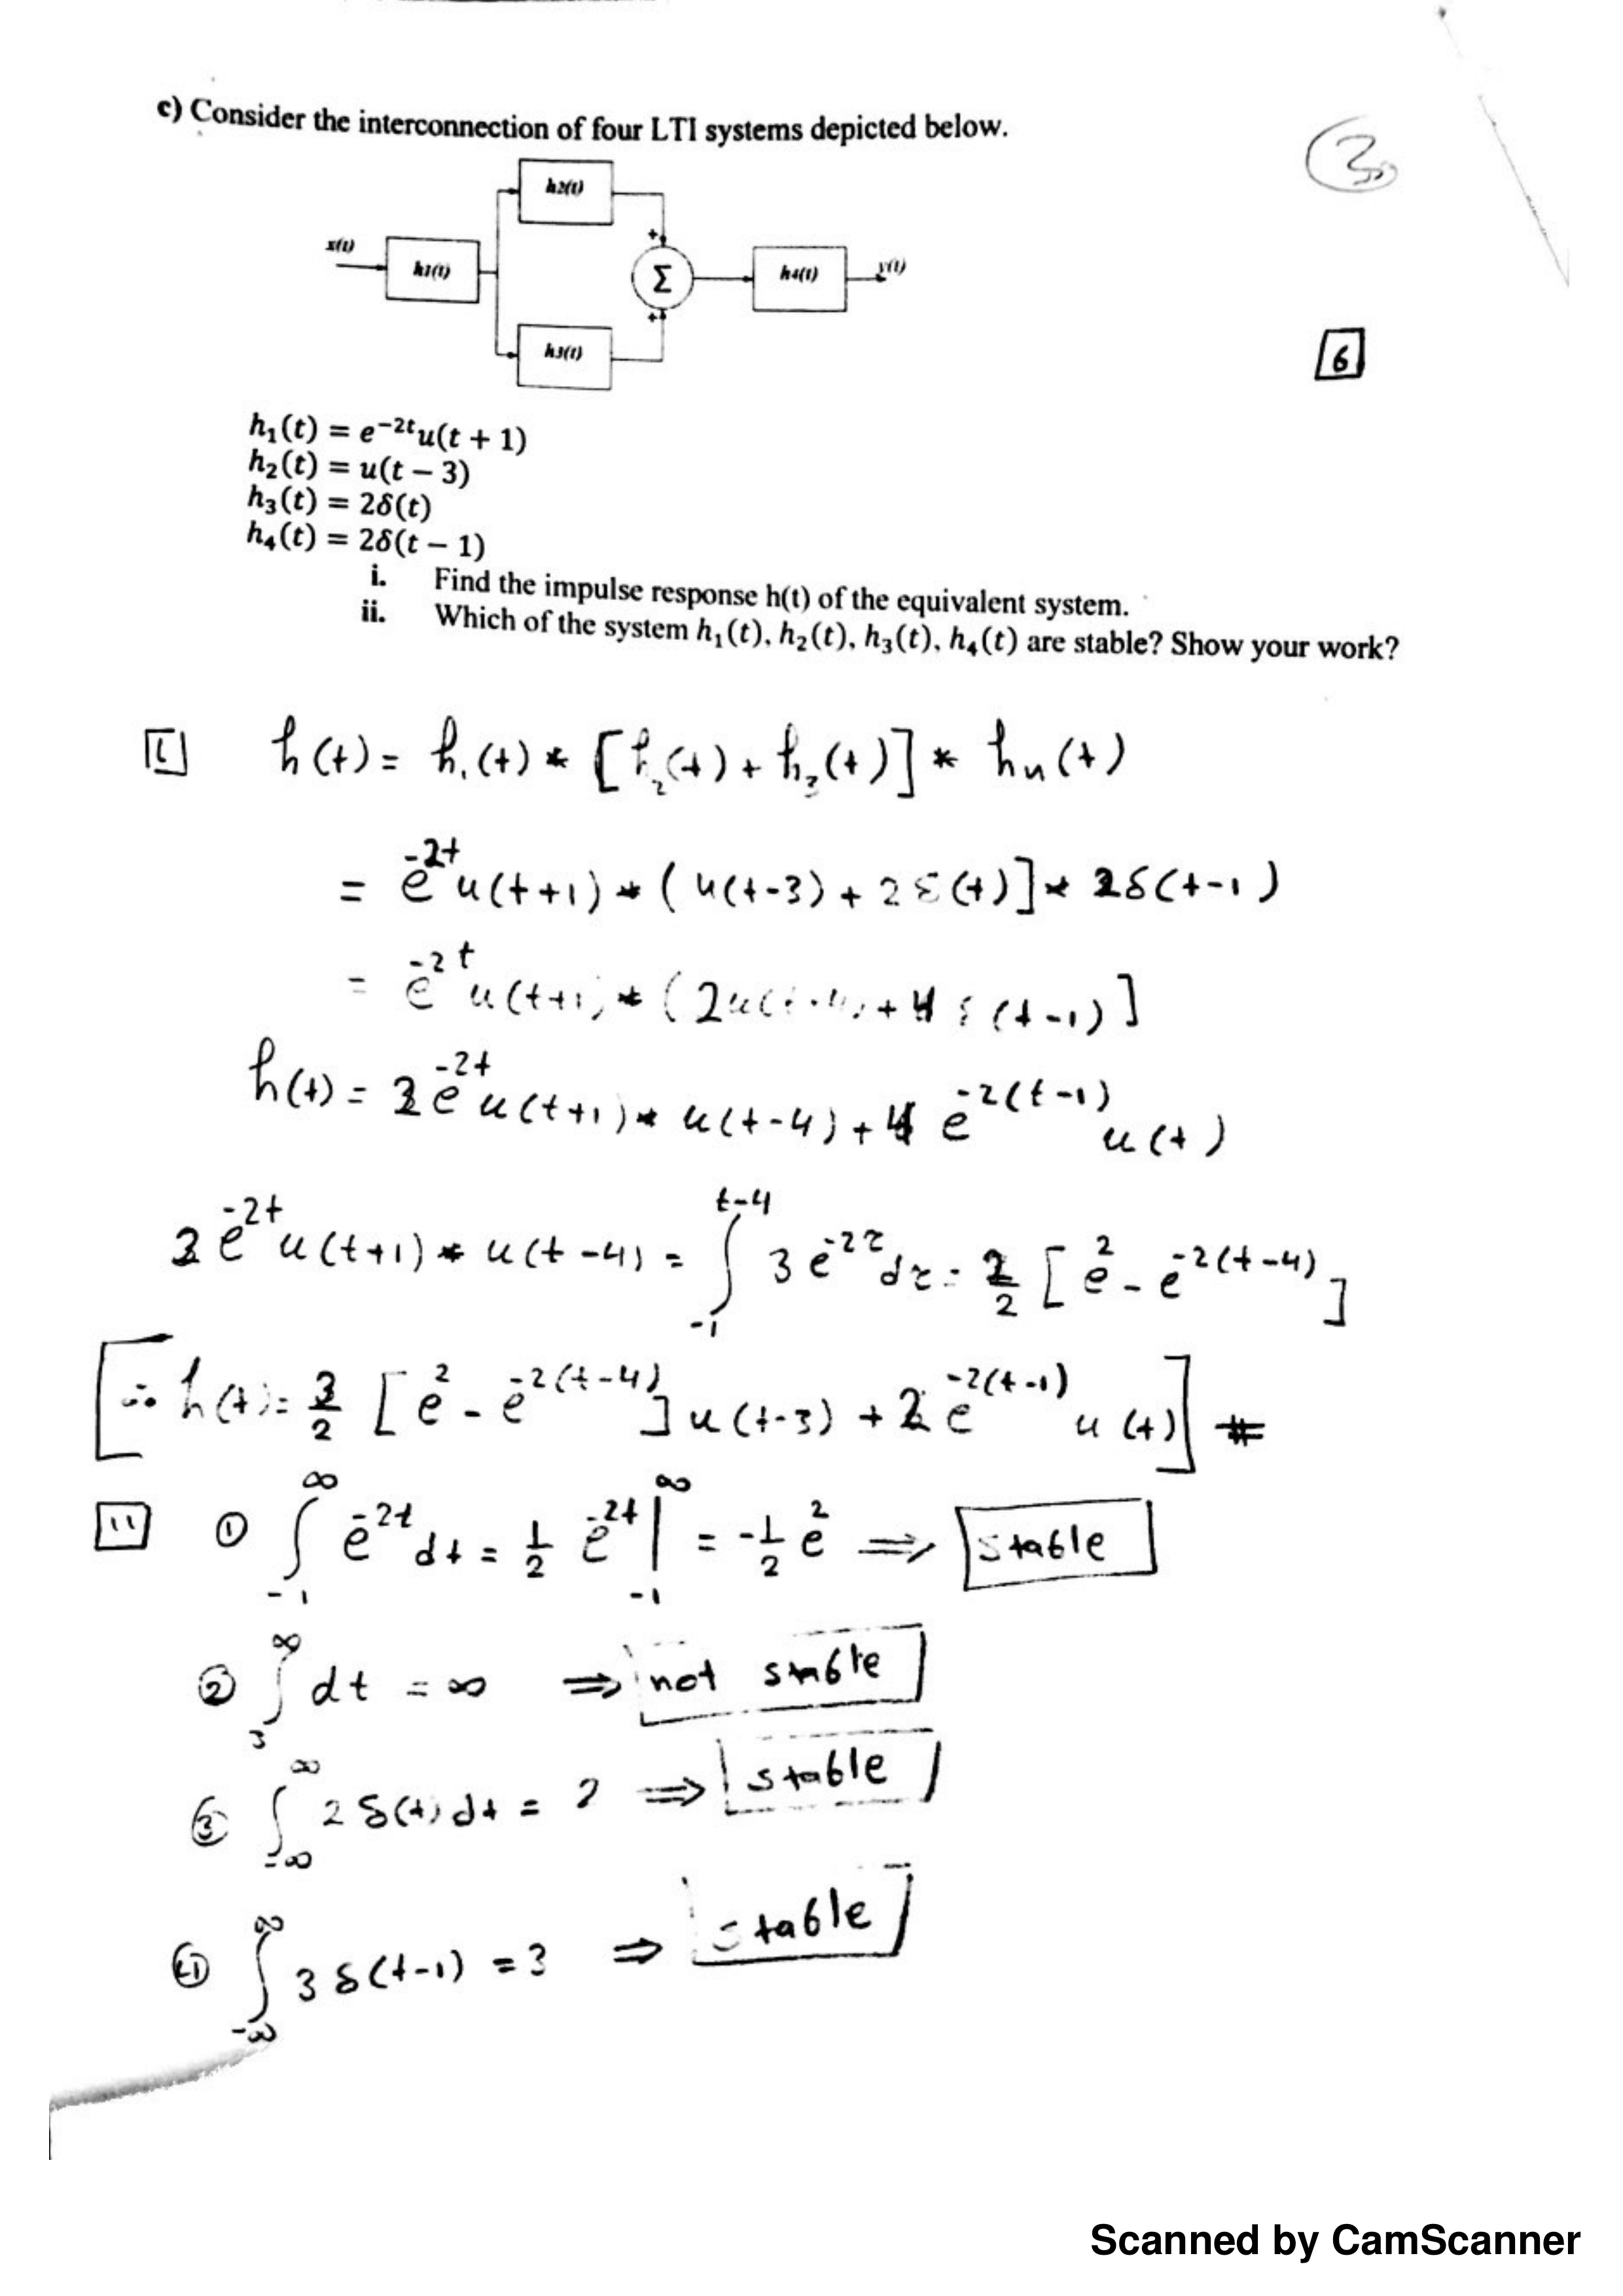 c) Consider the interconnection of four LTI systems depicted below.
3
h2(t)
x(t)
h1(t)
+
Σ
h4(t)
y(t)
+
h3(t)
6
h₁(t) = e⁻²ᵗu(t + 1)
h₂(t) = u(t − 3)
h₃(t) = 2δ(t)
h₄(t) = 2δ(t − 1)
i. Find the impulse response h(t) of the equivalent system.
ii. Which of the system h₁(t), h₂(t), h₃(t), h₄(t) are stable? Show your work?
i h(t) = h₁(t) * [h₂(t) + h₃(t)] * h₄(t)
= e^-2t u(t+1) * (u(t-3) + 2δ(t)] * 2δ(t-1)
= e^-2t u(t+1) * (2u(t-4) + 4δ(t-1)]
h(t) = 2e^-2t u(t+1) * u(t-4) + 4 e^-2(t-1) u(t)
2e^-2t u(t+1) * u(t-4) = ∫_-1^t-4 3e^-2τ dτ = 2/2 [e^2 - e^-2(t-4)]
[∴ h(t) = 3/2 [e^2 - e^-2(t-4)] u(t-3) + 2e^-2(t-1) u(t)] #
ii ① ∫_-1^∞ e^-2t dt = 1/2 e^-2t |_-1^∞ = -1/2 e^2 ⇒ stable
② ∫_3^∞ dt = ∞ ⇒ not stable
③ ∫_-∞^∞ 2δ(t) dt = 2 ⇒ stable
④ ∫_-∞^∞ 3δ(t-1) = 3 ⇒ stable
Scanned by CamScanner